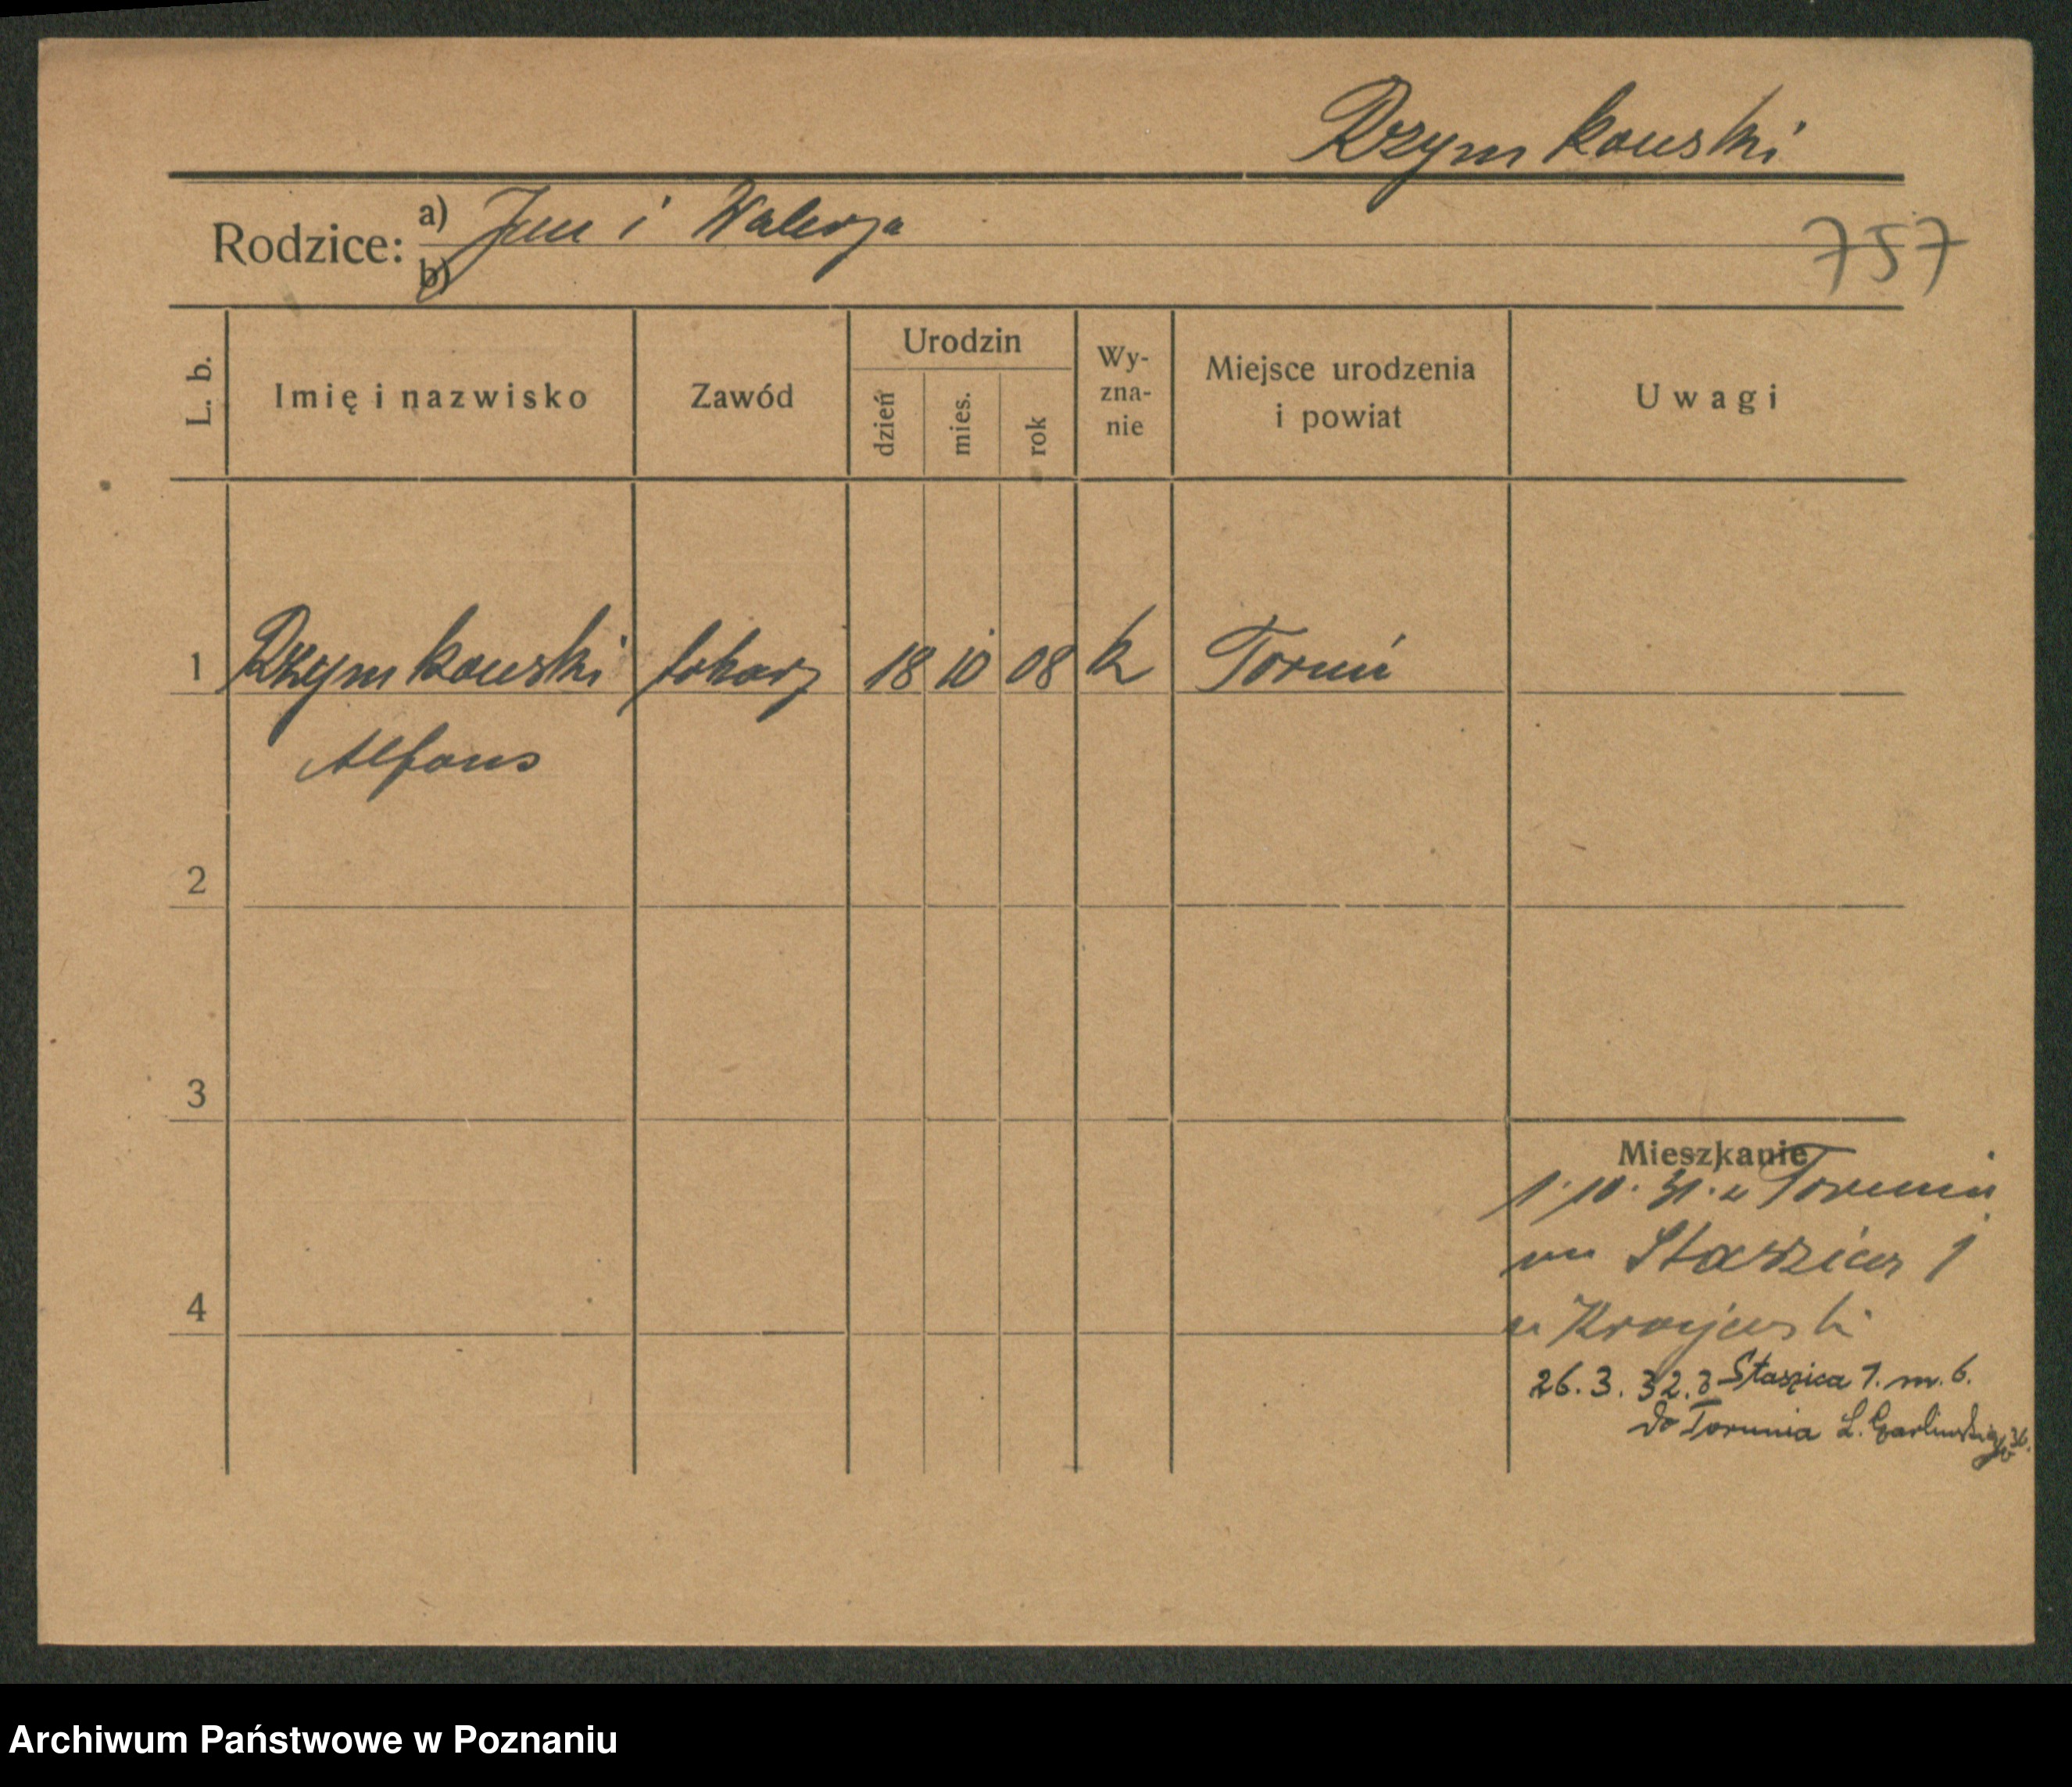 Rzymkowski
Rodzice: a) Jan i Walerja
b)
757
L. b.
Imię i nazwisko
Zawód
Urodzin
dzień
mies.
rok
Wy-
zna-
nie
Miejsce urodzenia
i powiat
Uwagi
1 Rzymkowski tokarz 18 10 08 k Toruń
Alfons
2
3
4
Mieszkanie
1. 10. 31. z Torunia
na Staszica 1
u Krajewski
26. 3. 32. z Staszica 1. m. 6.
do Torunia L.
Archiwum Państwowe w Poznaniu